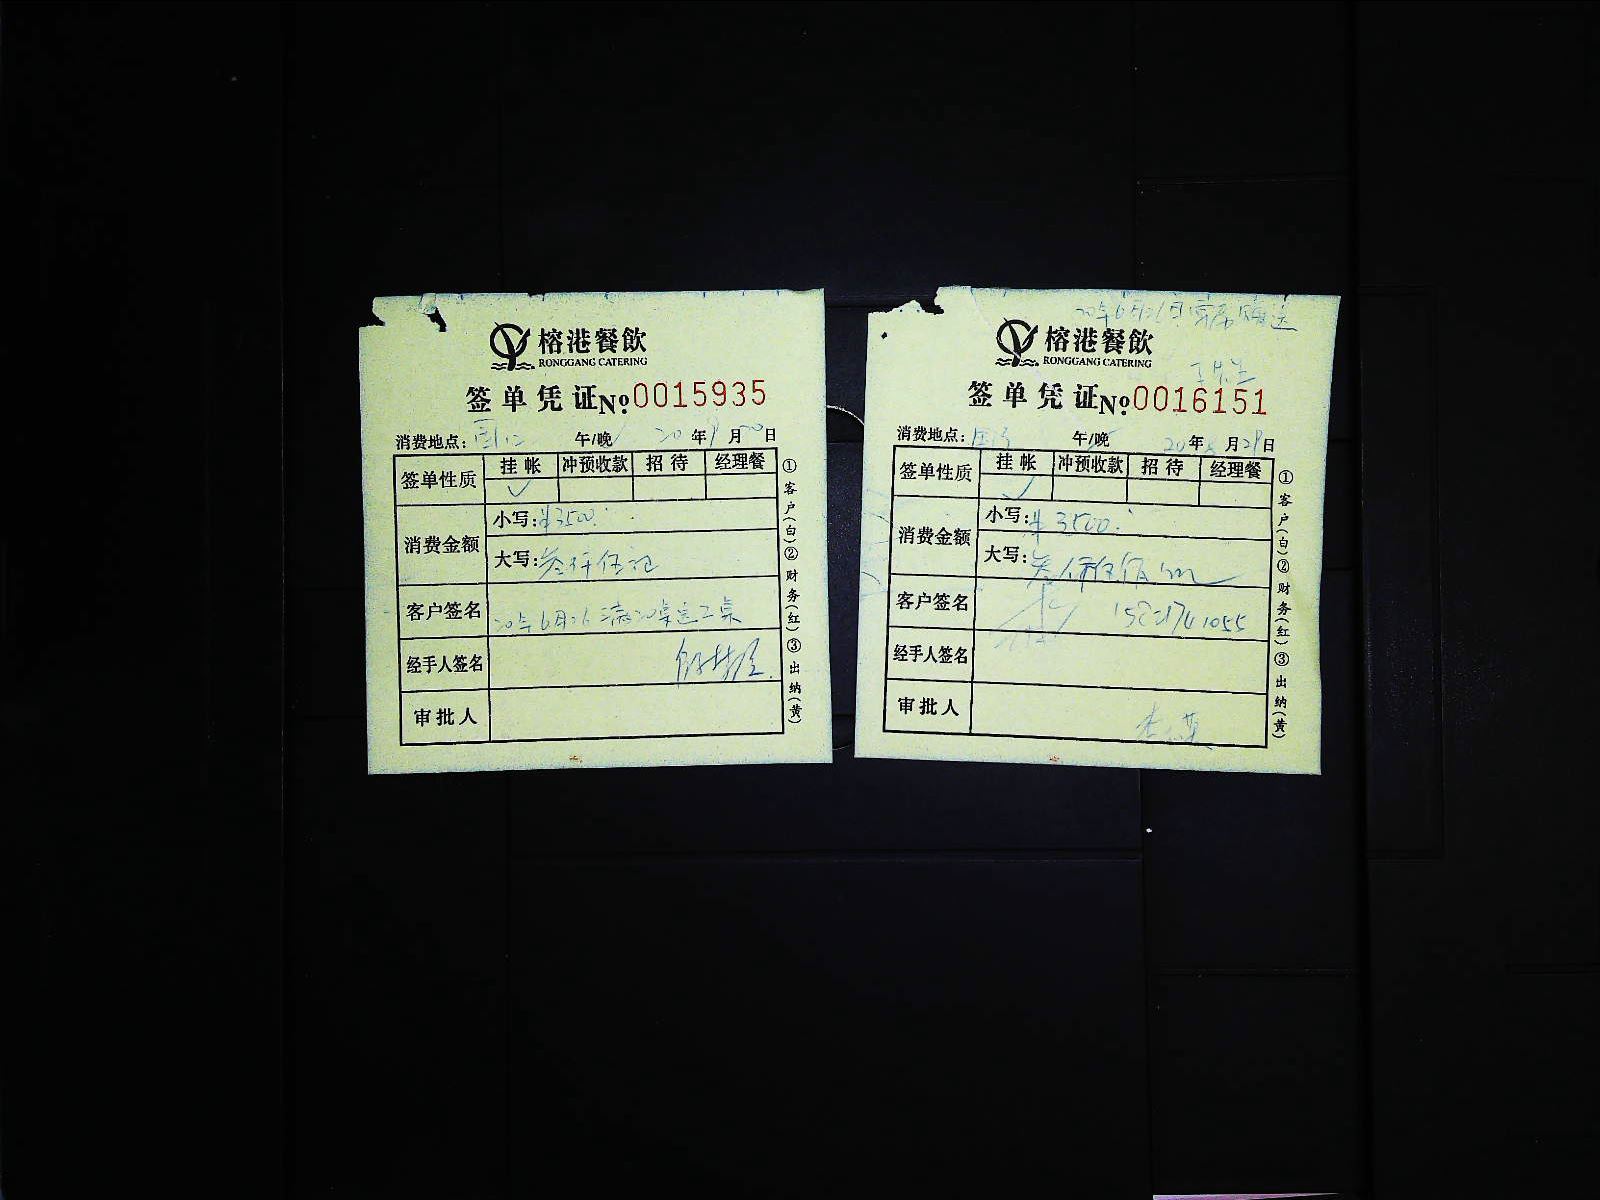 榕港餐飲
RONGGANG CATERING
签单凭证 No. 0015935
消费地点: 午/晚 20年9月 日
签单性质 挂帐 冲预收款 招待 经理餐
✓
消费金额 小写: ¥3500.
大写: 叁仟伍
客户签名 20年6月26 满20桌送二桌
经手人签名
审批人
①客户(白)②财务(红)③出纳(黄)
榕港餐飲
RONGGANG CATERING
20年6月26日
签单凭证 No. 0016151
消费地点: 午/晚 20年8月29日
签单性质 挂帐 冲预收款 招待 经理餐
✓
消费金额 小写: ¥3500.
大写: 叁仟伍佰
客户签名
经手人签名
审批人
①客户(白)②财务(红)③出纳(黄)